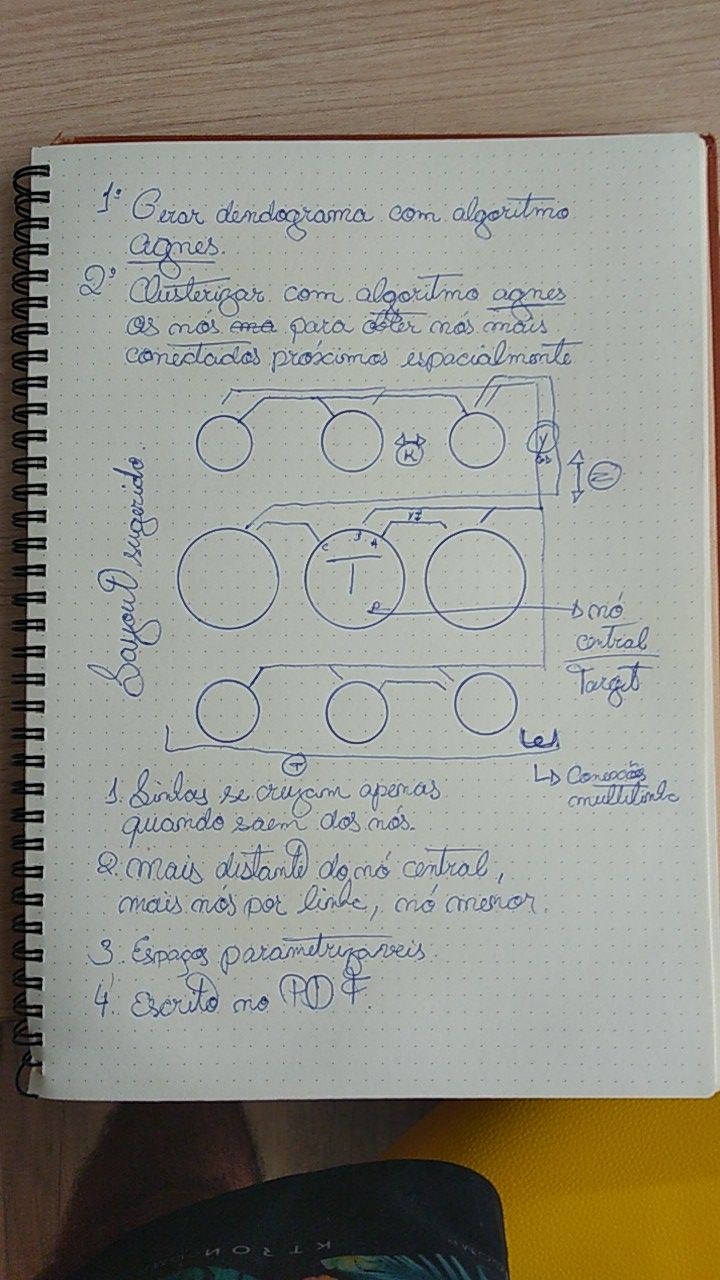 1º Gerar dendograma com algoritmo
agnes.
2º Clusterizar com algoritmo agnes
os nós para obter nós mais
conectados próximos espacialmente
Layout sugerido.
K
Y
Z
T
nó
central
Target
Conexões
multilinha
1. Linhas se cruzam apenas
quando saem dos nós.
2. Mais distante do nó central,
mais nós por linha, nó menor.
3. Espaços parametrizáveis.
4. Escrito no PDF.
KTRON